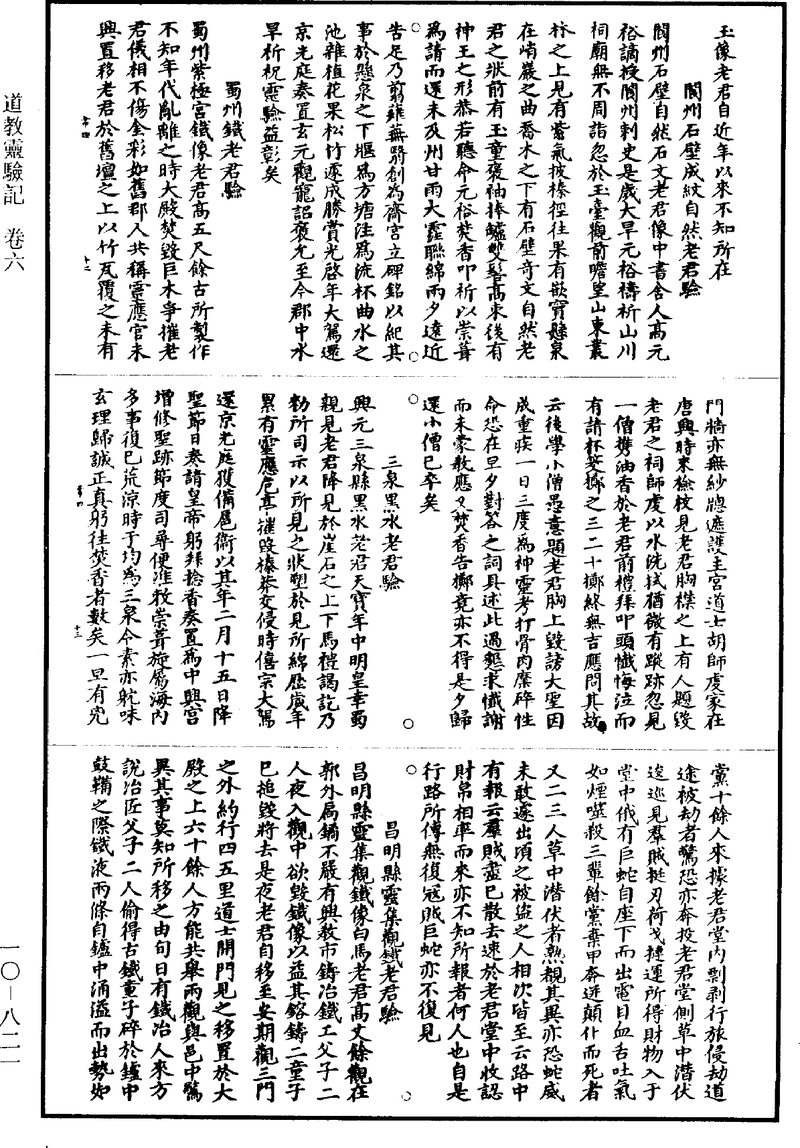 道教靈驗記　卷六
一〇—八二一
玉像老君自近年以來不知所在
閬州石壁成紋自然老君驗
閬州石壁自然石文老君像中書舍人高元
裕謫授閬州刺史是歲大旱元裕禱祈山川
祠廟無不周詣忽於玉臺觀前瞻望山東叢
林之上見有紫氣披榛徑往果有嵌竇懸泉
在峭巖之曲喬木之下有石壁奇文自然老
君之狀前有玉童褒袖捧鑪雙髻高來後有
神王之形恭若聽命元裕焚香叩祈以崇葺
為請而還未及州甘雨大霔聯綿兩夕遠近
告足乃剪薙蕪翳創為齋宮立碑銘以紀其
事於懸泉之下堰為方塘注為流杯曲水之
池雜植花果松竹遂成勝賞光啓年大駕還
京光庭奏置玄元觀寵詔褒允至今郡中水
旱祈祝靈驗益彰矣
蜀州鐵老君驗
蜀州紫極宮鐵像老君高五尺餘古所製作
不知年代亂離之時大殿焚毀巨木爭摧老
君儀相不傷金彩如舊郡人共稱靈應官未
興置移老君於舊壇之上以竹瓦覆之未有
十二
門牆亦無紗牕遮護主宮道士胡師虔家在
唐興時來檢校見老君胸襟之上有人題毀
老君之祠師虔以水洗拭猶微有蹤跡忽見
一僧攜油香於老君前禮拜叩頭懺悔泣而
有請杯筊擲之三二十擲終無吉應問其故
云後學小僧愚意題老君胸上毀謗大聖因
成重疾一日三度為神靈考打骨肉糜碎性
命恐在旦夕對答之詞具述此過懇求懺謝
而未蒙救應又焚香告擲竟亦不得是夕歸
還小僧已卒矣
三泉黑水老君驗
興元三泉縣黑水老君天寶年中明皇幸蜀
親見老君降見於崖石之上下馬禮謁訖乃
勅所司示以所見之狀塑於見所綿歷歲年
累有靈應危亭摧毀榛莽交侵時僖宗大駕
還京光庭獲備扈衛以其年二月十五日降
聖節日奏請皇帝躬拜捻香奏置為中興宮
增修聖跡節度司尋便准敕崇葺旋屬海內
多事復已荒涼時于均為三泉令素亦躭味
玄理歸誠正真躬往焚香者數矣一旦有兇
十三
黨十餘人來據老君堂內剽剥行旅侵劫道
途被劫者驚恐亦奔投老君堂側草中潛伏
逡巡見羣賊挺刃荷戈捷運所得財物入于
堂中俄有巨蛇自座下而出電目血舌吐氣
如煙噬殺三輩餘黨棄甲奔迸顛仆而死者
又二三人草中潛伏者熟覩其異亦恐蛇威
未敢遽出頃之被盜之人相次皆至云路中
有報云羣賊盡已散去速於老君堂中收認
財帛相率而來亦不知所報者何人也自是
行路所傳無復寇賊巨蛇亦不復見
昌明縣靈集觀鐵老君驗
昌明縣靈集觀鐵像白馬老君高丈餘觀在
郭外扃鐍不嚴有興教市鑄冶鐵工父子二
人夜入觀中欲毀鐵像以益其鎔鑄二童子
已搥毀將去是夜老君自移至安期觀三門
之外約行四五里道士開門見之移置於大
殿之上六十餘人方能共舉兩觀與邑中驚
異其事莫知所移之由旬日有鐵冶人來方
說冶匠父子二人偷得古鐵童子碎於鑪中
鼓鞴之際鐵液兩條自鑪中涌溢而出勢如